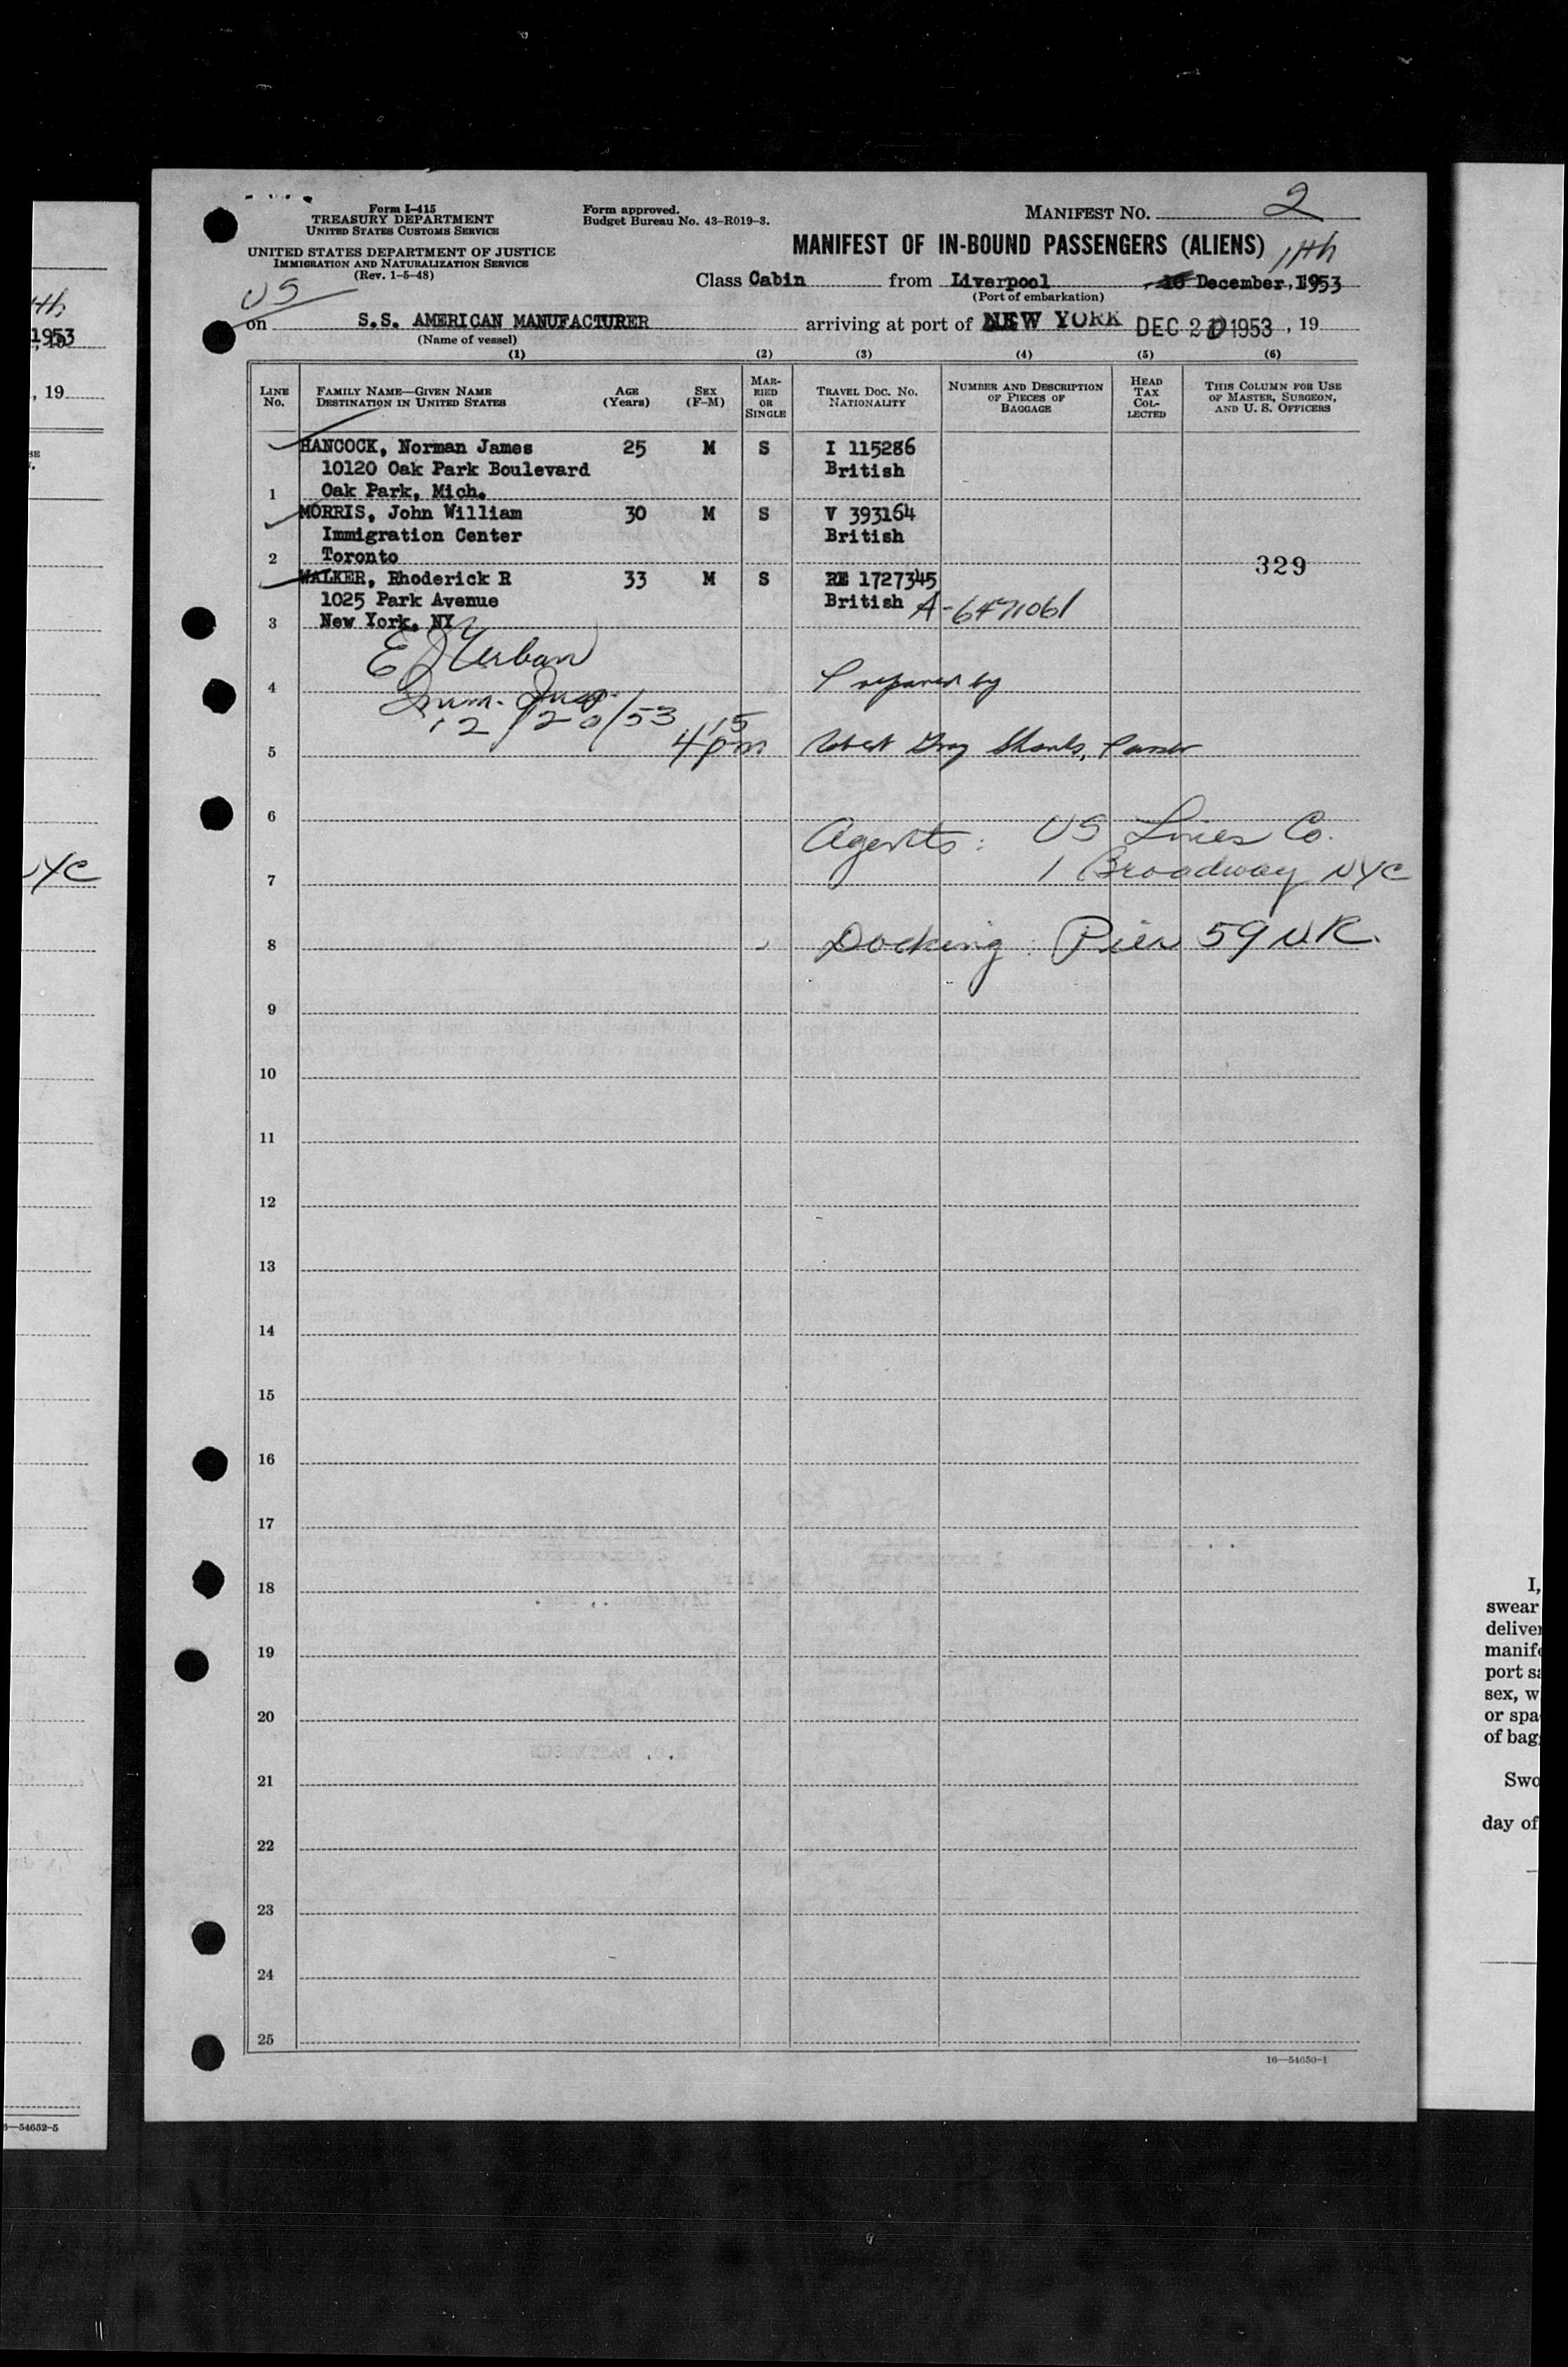 Form I-415
TREASURY DEPARTMENT
UNITED STATES CUSTOMS SERVICE
UNITED STATES DEPARTMENT OF JUSTICE
IMMIGRATION AND NATURALIZATION SERVICE
(Rev. 1-5-48)
Form approved.
Budget Bureau No. 43-R019-3.
MANIFEST NO. 2
MANIFEST OF IN-BOUND PASSENGERS (ALIENS)
11th
Class Cabin from Liverpool December, 1953
(Port of embarkation)
US
on S.S. AMERICAN MANUFACTURER arriving at port of NEW YORK DEC 20 1953, 19
(Name of vessel)
(1) (2) (3) (4) (5) (6)
LINE No. FAMILY NAME—GIVEN NAME DESTINATION IN UNITED STATES AGE (Years) SEX (F-M) MARRIED OR SINGLE TRAVEL DOC. NO. NATIONALITY NUMBER AND DESCRIPTION OF PIECES OF BAGGAGE HEAD TAX COLLECTED THIS COLUMN FOR USE OF MASTER, SURGEON, AND U. S. OFFICERS
HANCOCK, Norman James 25 M S I 115286
10120 Oak Park Boulevard British
1 Oak Park, Mich.
MORRIS, John William 30 M S V 393164
Immigration Center British
2 Toronto 329
WALKER, Rhoderick R 33 M S RE 1727345
1025 Park Avenue British A-6471061
3 New York, NY
E J Urban
4 Imm. Insp. Prepared by
12/20/53
5 4 15 pm Robert Gray Shanks, Purser
6 Agents: US Lines Co.
7 1 Broadway NYC
8 Docking: Pier 59 N.R.
9
10
11
12
13
14
15
16
17
18
19
20
21
22
23
24
25
16—54650-1
1953
, 19
NYC
54652-5
I,
swear
port
sex, w
or spa
of bag
Swo
day of